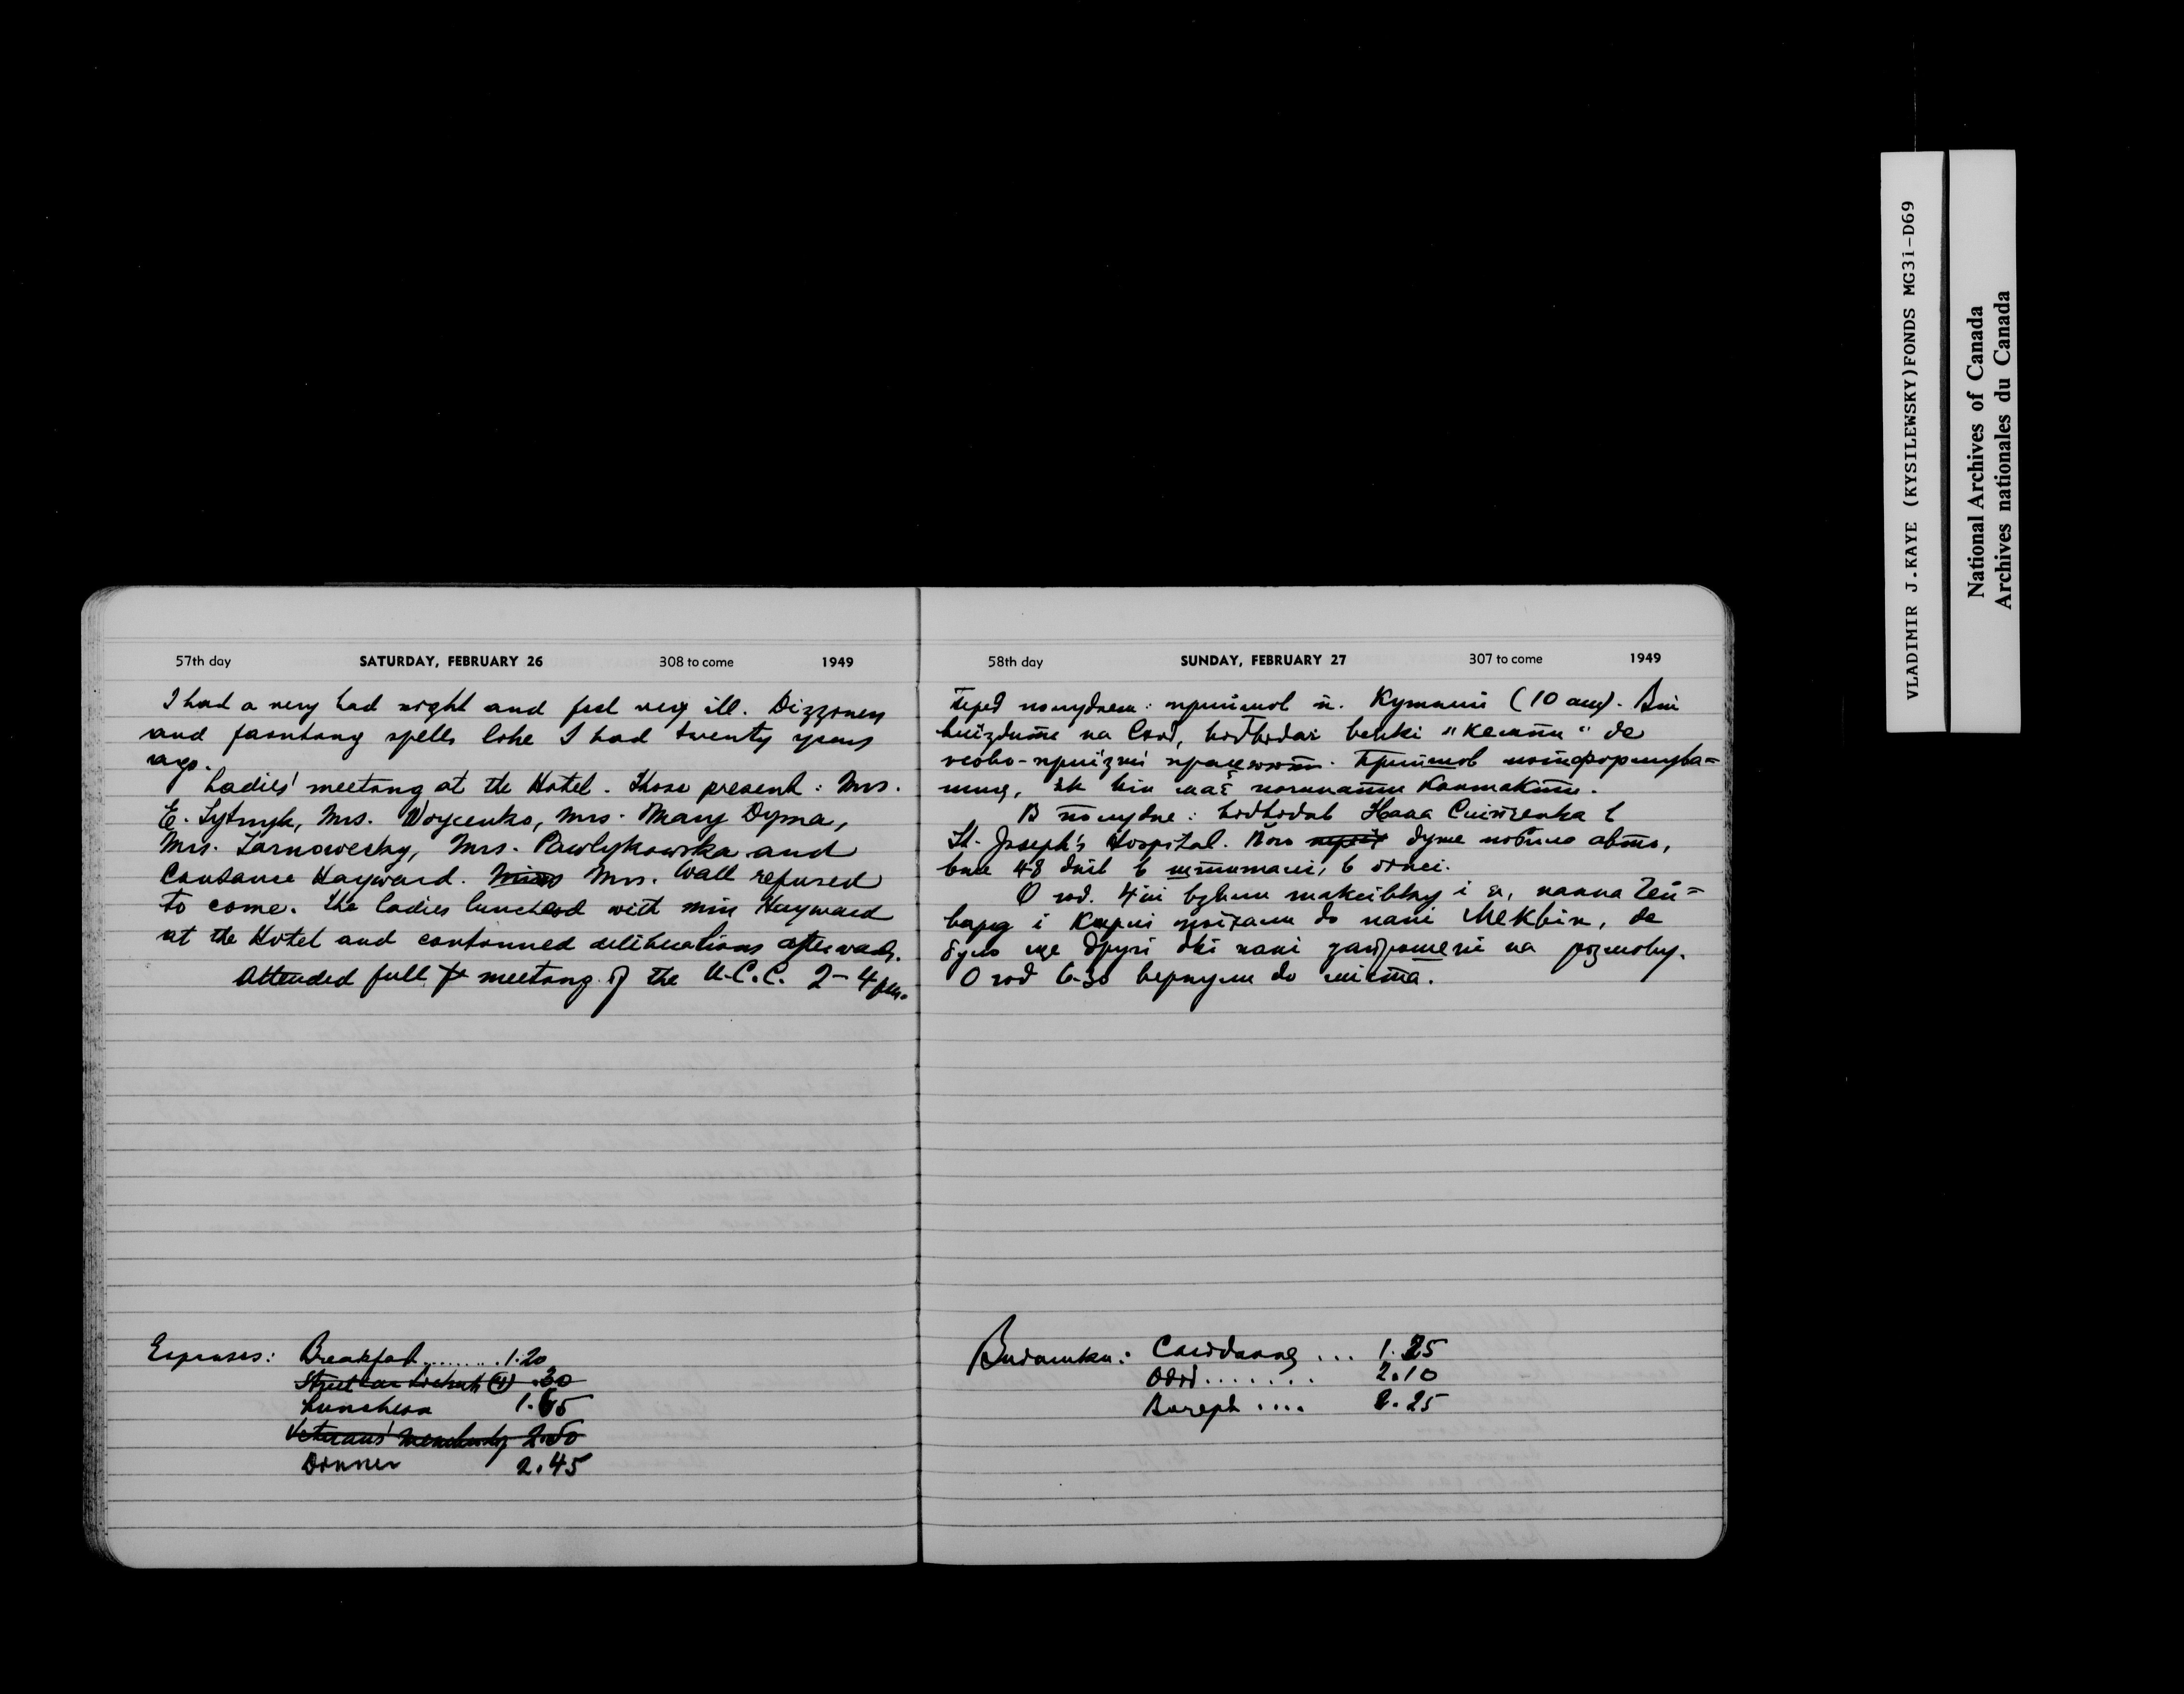 57th day SATURDAY, FEBRUARY 26 308 to come 1949
I had a very bad night and feel very ill. Dizziness
and fainting spells like I had twenty years
ago.
Ladies' meeting at the Hotel. Those present: Mrs.
E. Sytnyk, Mrs. Woycenko, Mrs. Mary Dyma,
Mrs. Tarnowecky, Mrs. Pawlykowska and
Constance Hayward. Miss Mrs. Wall refused
to come. The ladies lunched with Miss Hayward
at the Hotel and continued deliberations afterwards.
Attended full meeting of the U.C.C. 2-4 pm.
Expenses: Breakfast ........ 1.20
Street car tickets (4) .30
Luncheon 1.65
Veterans' Membership 2.50
Dinner 2.45
58th day SUNDAY, FEBRUARY 27 307 to come 1949
Перед полуднем: прийшов п. (10 am). Він
виїздить на Схід, відвідає всякі "кемпи" де
ново-приїзжі працюють. Прийшов поінформува=
тись, як він має починати контакти.
В полудне: відвідав Нала Смітенка в
St. Joseph's Hospital. Його дуже побило авто,
вже 48 днів в шпиталі, в
О год. 4ій взяли таксівку і я, панна Гей=
вард і поїхали до пані МекКвін, де
було ще другі дві пані запрошені на розмову.
О год 6-30 вернули до міста.
Видатки: Снідання ... 1.25
Обід ....... 2.10
Вечеря .... 2.25
VLADIMIR J.KAYE (KYSILEWSKY)FONDS MG31-D69
National Archives of Canada
Archives nationales du Canada